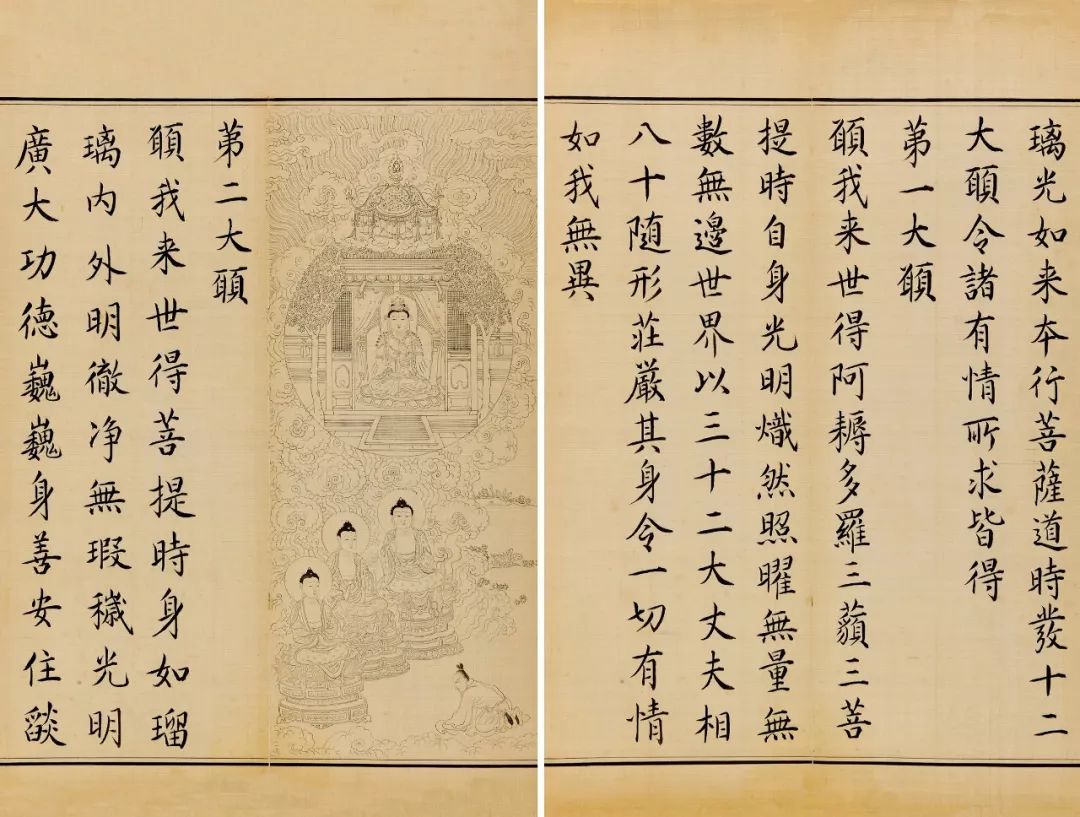 璃光如来本行菩薩道時發十二
大願令諸有情所求皆得
苐一大願
願我来世得阿耨多羅三藐三菩
提時自身光明熾然照曜無量無
數無邊世界以三十二大丈夫相
八十随形莊嚴其身令一切有情
如我無異
苐二大願
願我来世得菩提時身如瑠
璃内外明徹净無瑕穢光明
廣大功德巍巍身善安住燄